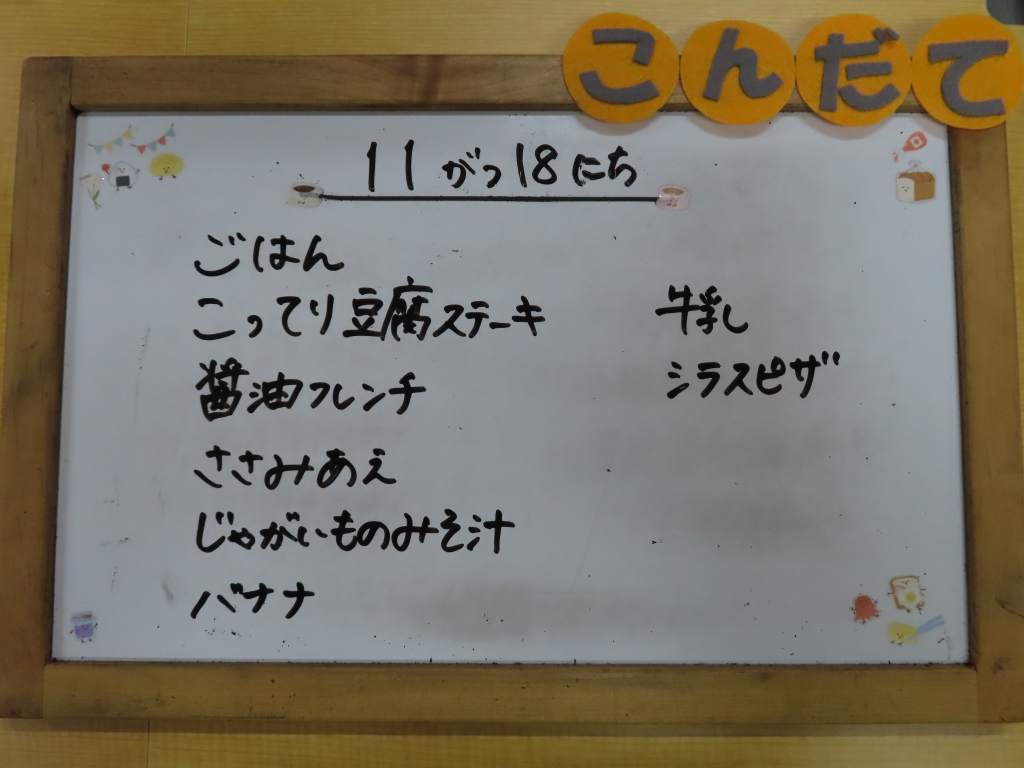 こんだて
11がつ18にち
ごはん
こってり豆腐ステーキ
醤油フレンチ
ささみあえ
じゃがいものみそ汁
バナナ
牛乳
シラスピザ